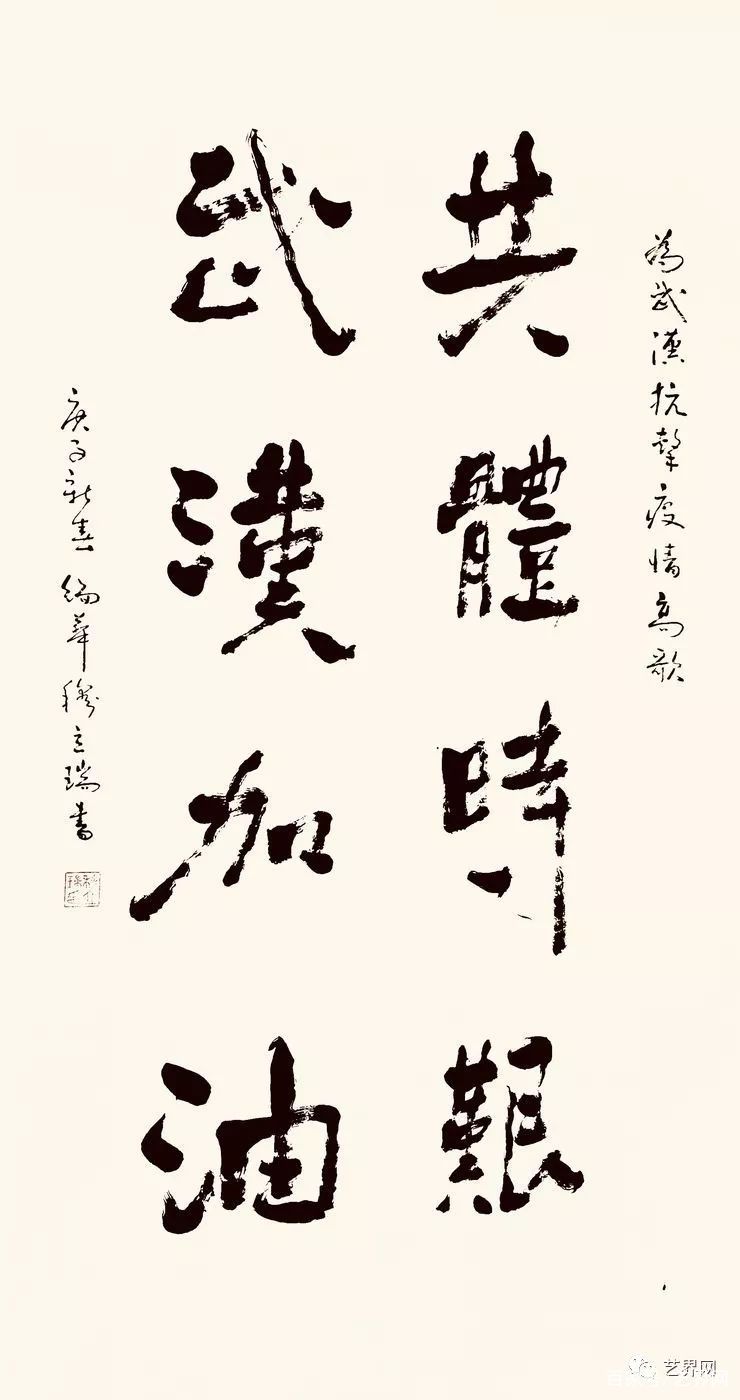 為武漢抗擊疫情高歌
共體時艱
武漢加油
庚子新春 華穆立瑞書
艺界网